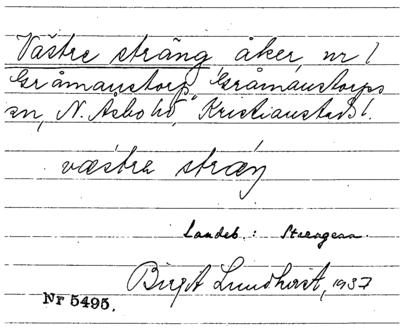 Västre sträng, åker, nr 1
Gråmanstorp, Gråmanstorps
sn, N. Åsbo hd, Kristianstads l.
västra sträŋ
Landeb.:
Birgit Lundkvist, 1937
Nr 5495.